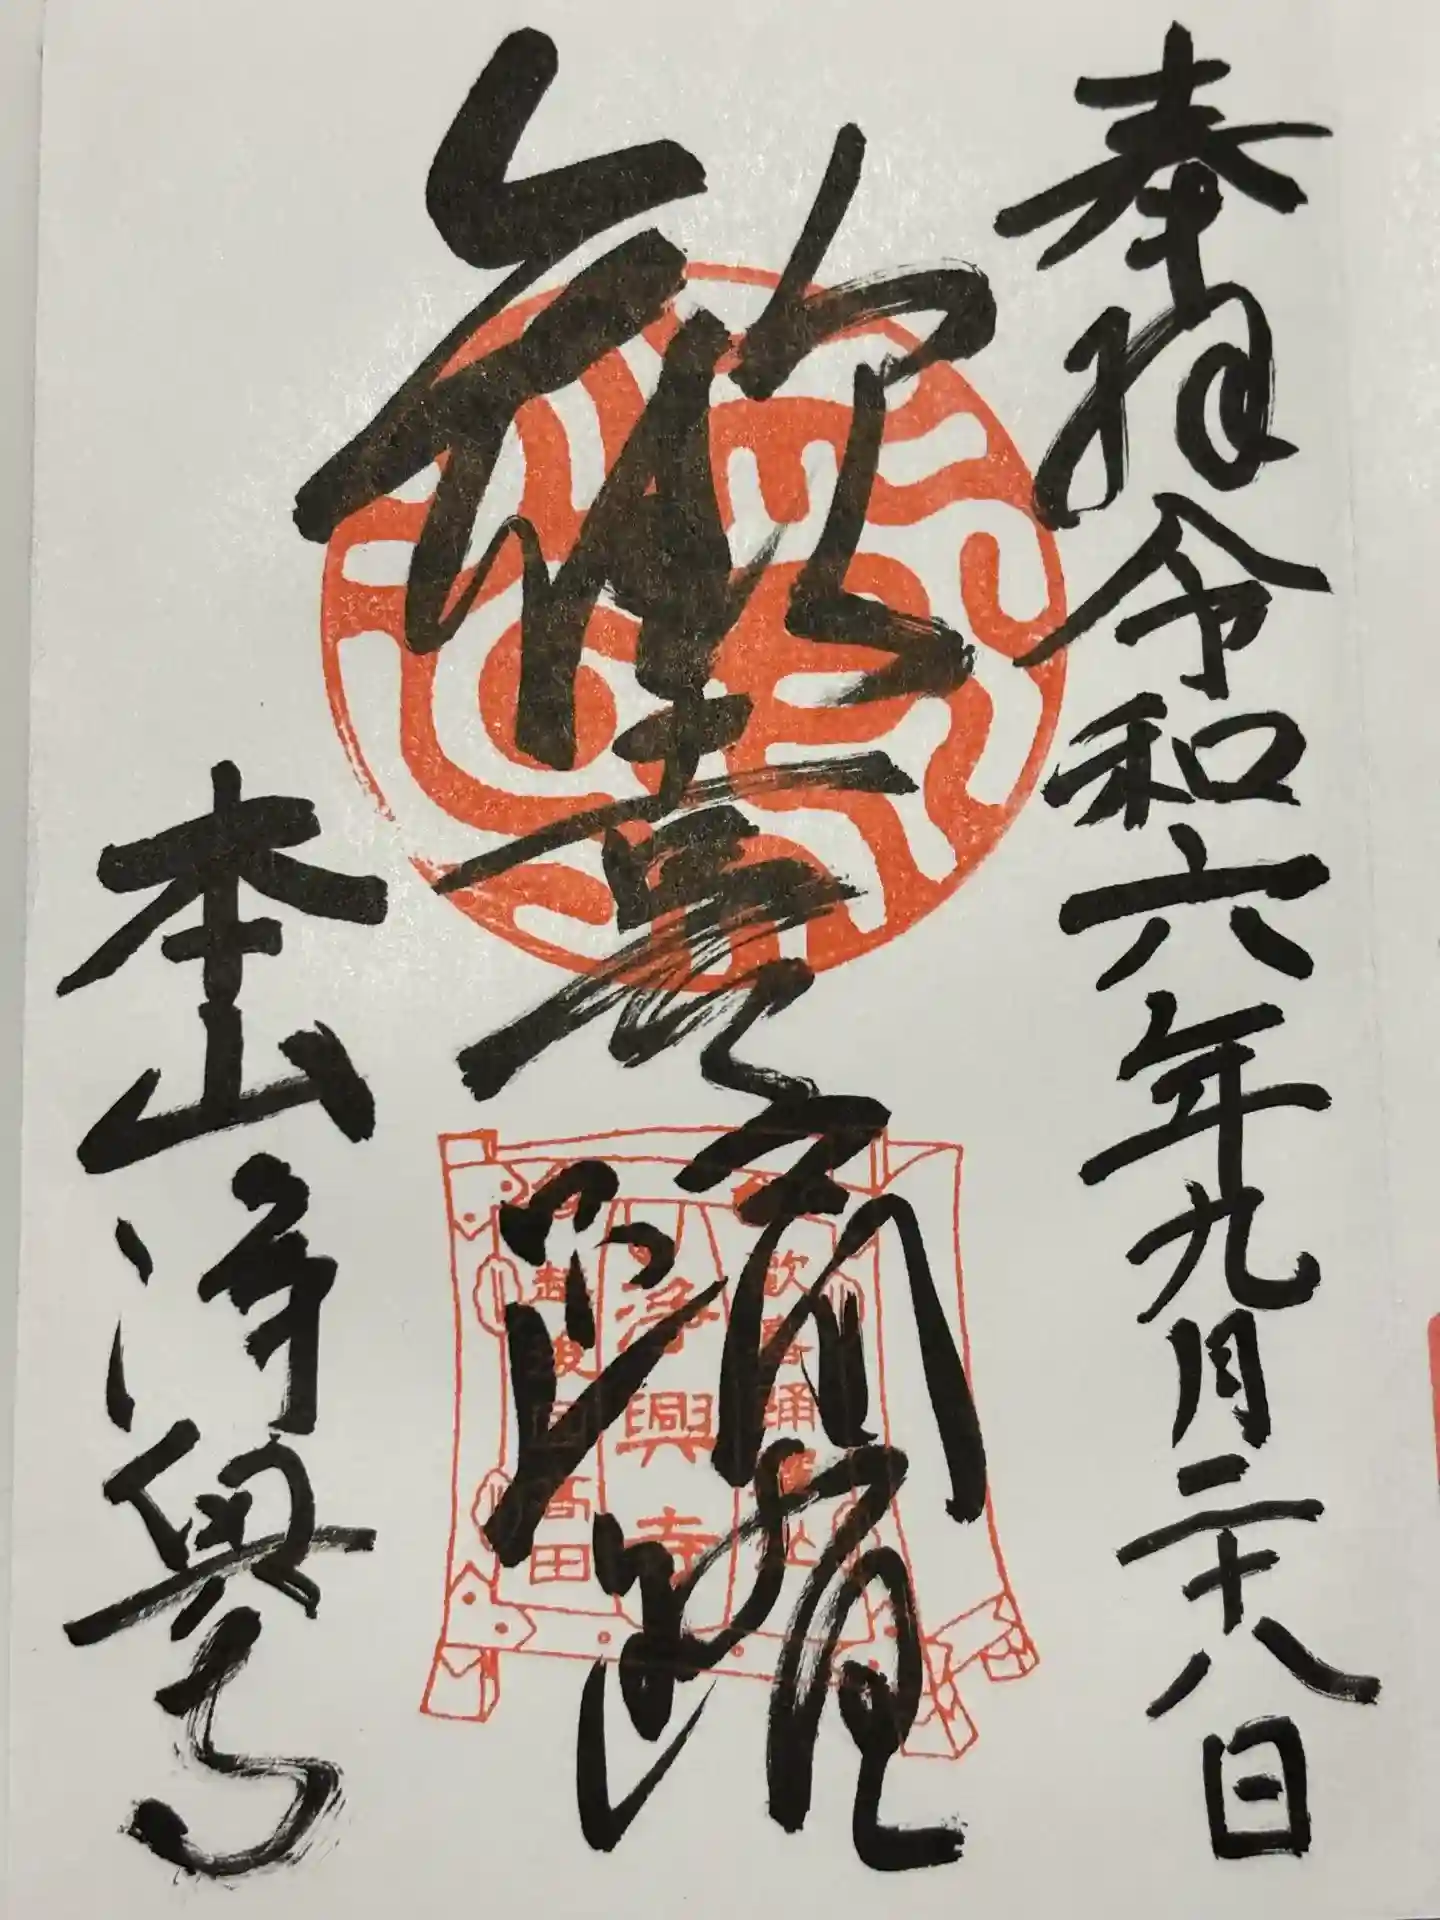 奉拝令和六年九月二十八日
歓喜踊躍
本山浄興寺
歓喜踊躍山
浄興寺
越後国高田